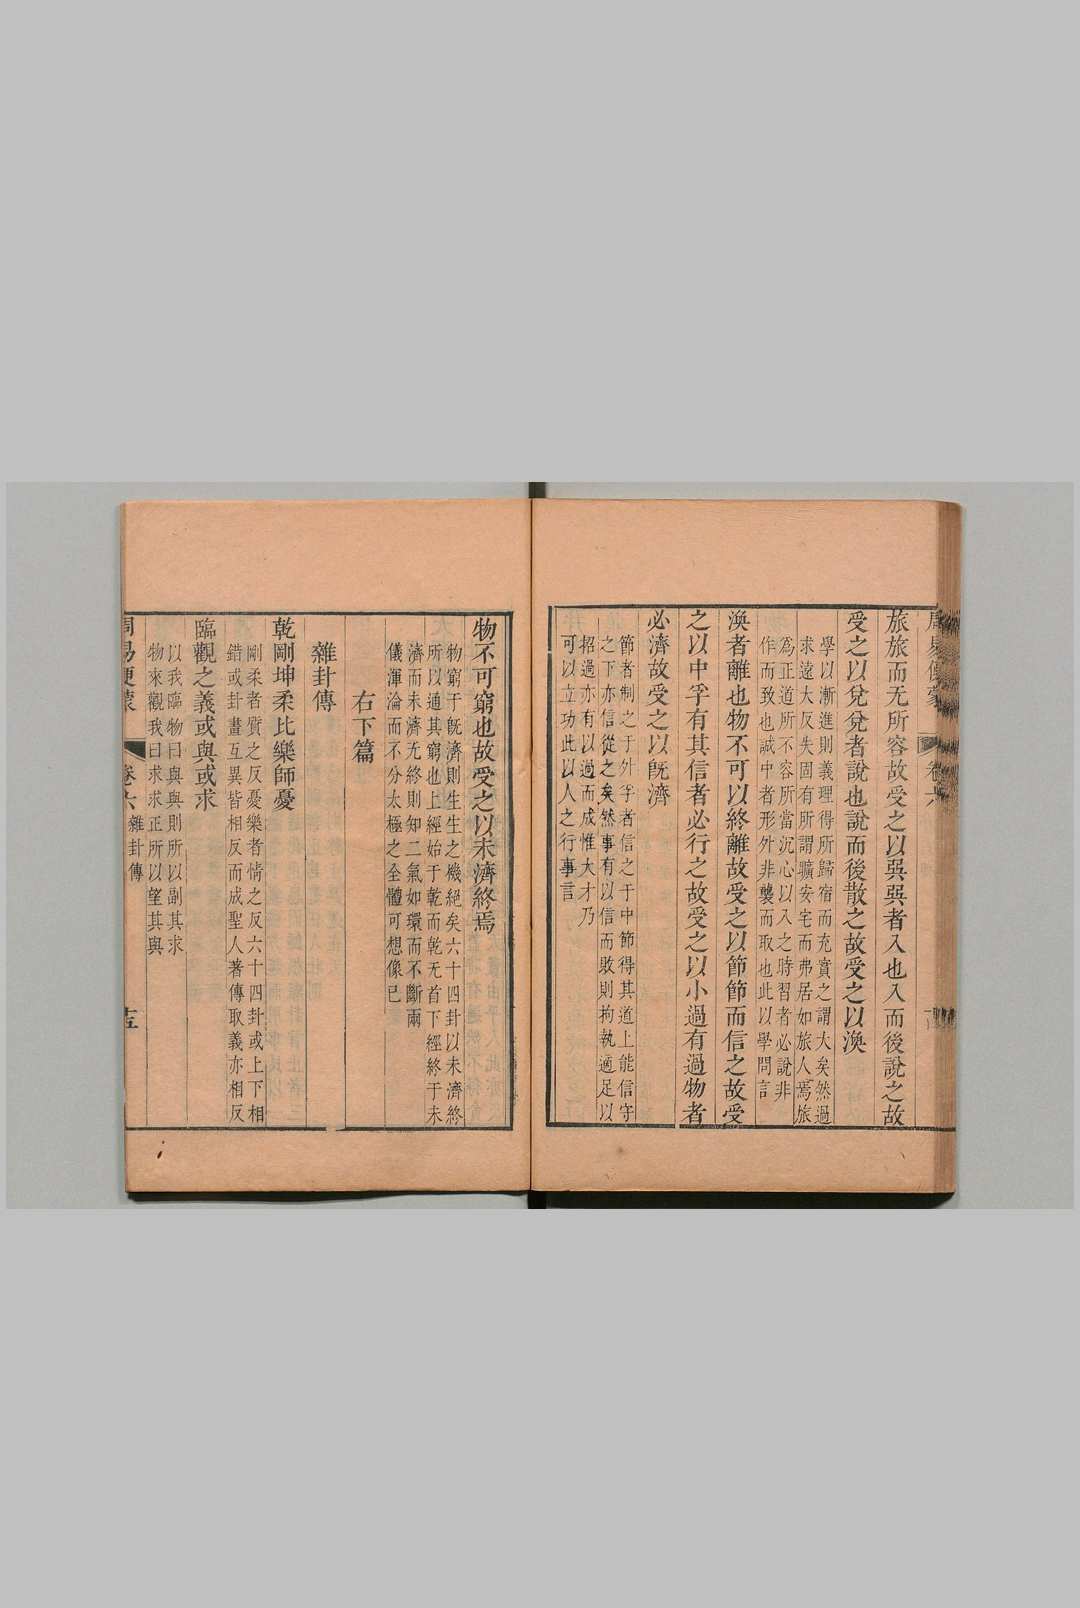 周易便蒙
卷六
旅旅而无所容故受之以巽巽者入也入而後說之故
受之以兌兌者說也說而後散之故受之以渙
學以漸進則義理得所歸宿而充實之謂大矣然過
求遠大反失固有所謂曠安宅而弗居如旅人焉旅
爲正道所不容所當沉心以入之時習者必說非
作而致也誠中者形外非襲而取也此以學問言
渙者離也物不可以終離故受之以節節而信之故受
之以中孚有其信者必行之故受之以小過有過物者
必濟故受之以旣濟
節者制之于外孚者信之于中節得其道上能信守
之下亦信從之矣然事有以信而敗則拘執適足以
招過亦有以過而成惟大才乃
可以立功此以人之行事言
物不可窮也故受之以未濟終焉
物窮于旣濟則生生之機絕矣六十四卦以未濟終
所以通其窮也上經始于乾而乾无首下經終于未
濟而未濟无終則知二氣如環而不斷兩
儀渾淪而不分太極之全體可想像已
右下篇
雜卦傳
乾剛坤柔比樂師憂
剛柔者質之反憂樂者情之反六十四卦或上下相
錯或卦畫互異皆相反而成聖人著傳取義亦相反
臨觀之義或與或求
以我臨物曰與與則所以副其求
物來觀我曰求求正所以望其與
周易便蒙
卷六
雜卦傳
十五